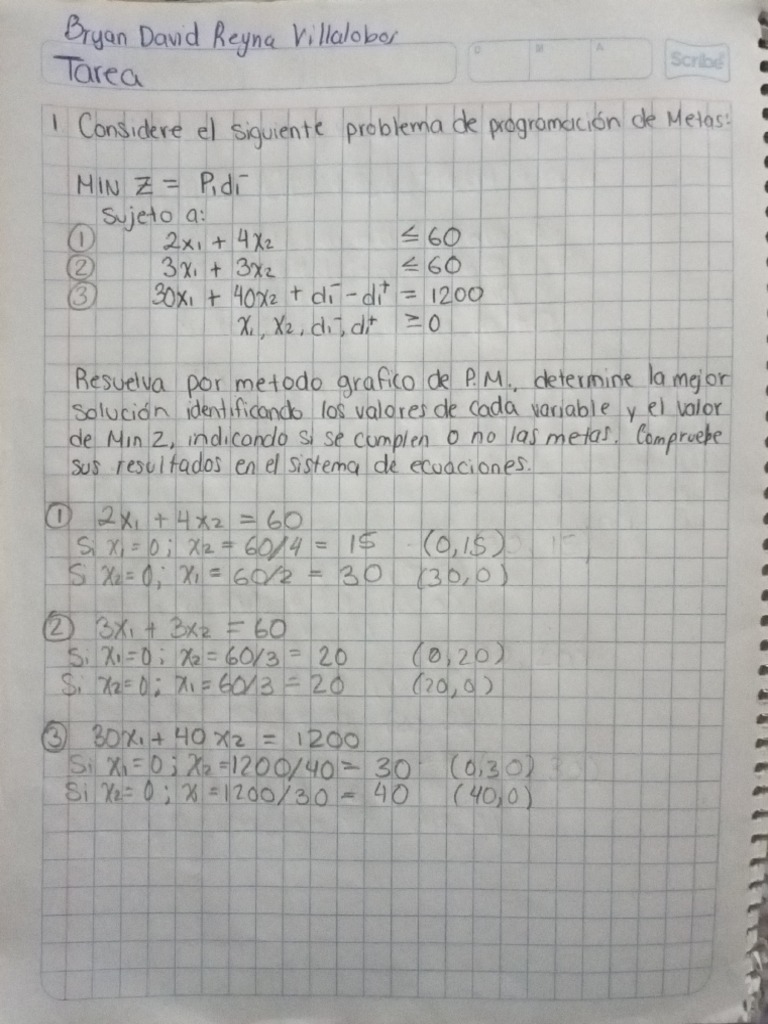 Bryan David Reyna Villalobos
Tarea
D M A
Scribe
1 Considere el siguiente problema de programación de Metas:
MIN Z = P₁d₁⁻
Sujeto a:
① 2x₁ + 4x₂ ≤ 60
② 3x₁ + 3x₂ ≤ 60
③ 30x₁ + 40x₂ + d₁⁻ - d₁⁺ = 1200
x₁, x₂, d₁⁻, d₁⁺ ≥ 0
Resuelva por metodo grafico de P.M., determine la mejor
solución identificando los valores de cada variable y el valor
de Min Z, indicando si se cumplen o no las metas. Compruebe
sus resultados en el sistema de ecuaciones.
① 2x₁ + 4x₂ = 60
Si x₁=0; x₂ = 60/4 = 15 (0,15)
Si x₂=0; x₁ = 60/2 = 30 (30,0)
② 3x₁ + 3x₂ = 60
Si x₁=0; x₂=60/3 = 20 (0,20)
Si x₂=0; x₁=60/3 = 20 (20,0)
③ 30x₁ + 40x₂ = 1200
Si x₁=0; x₂=1200/40= 30 (0,30)
Si x₂=0; x=1200/30 = 40 (40,0)